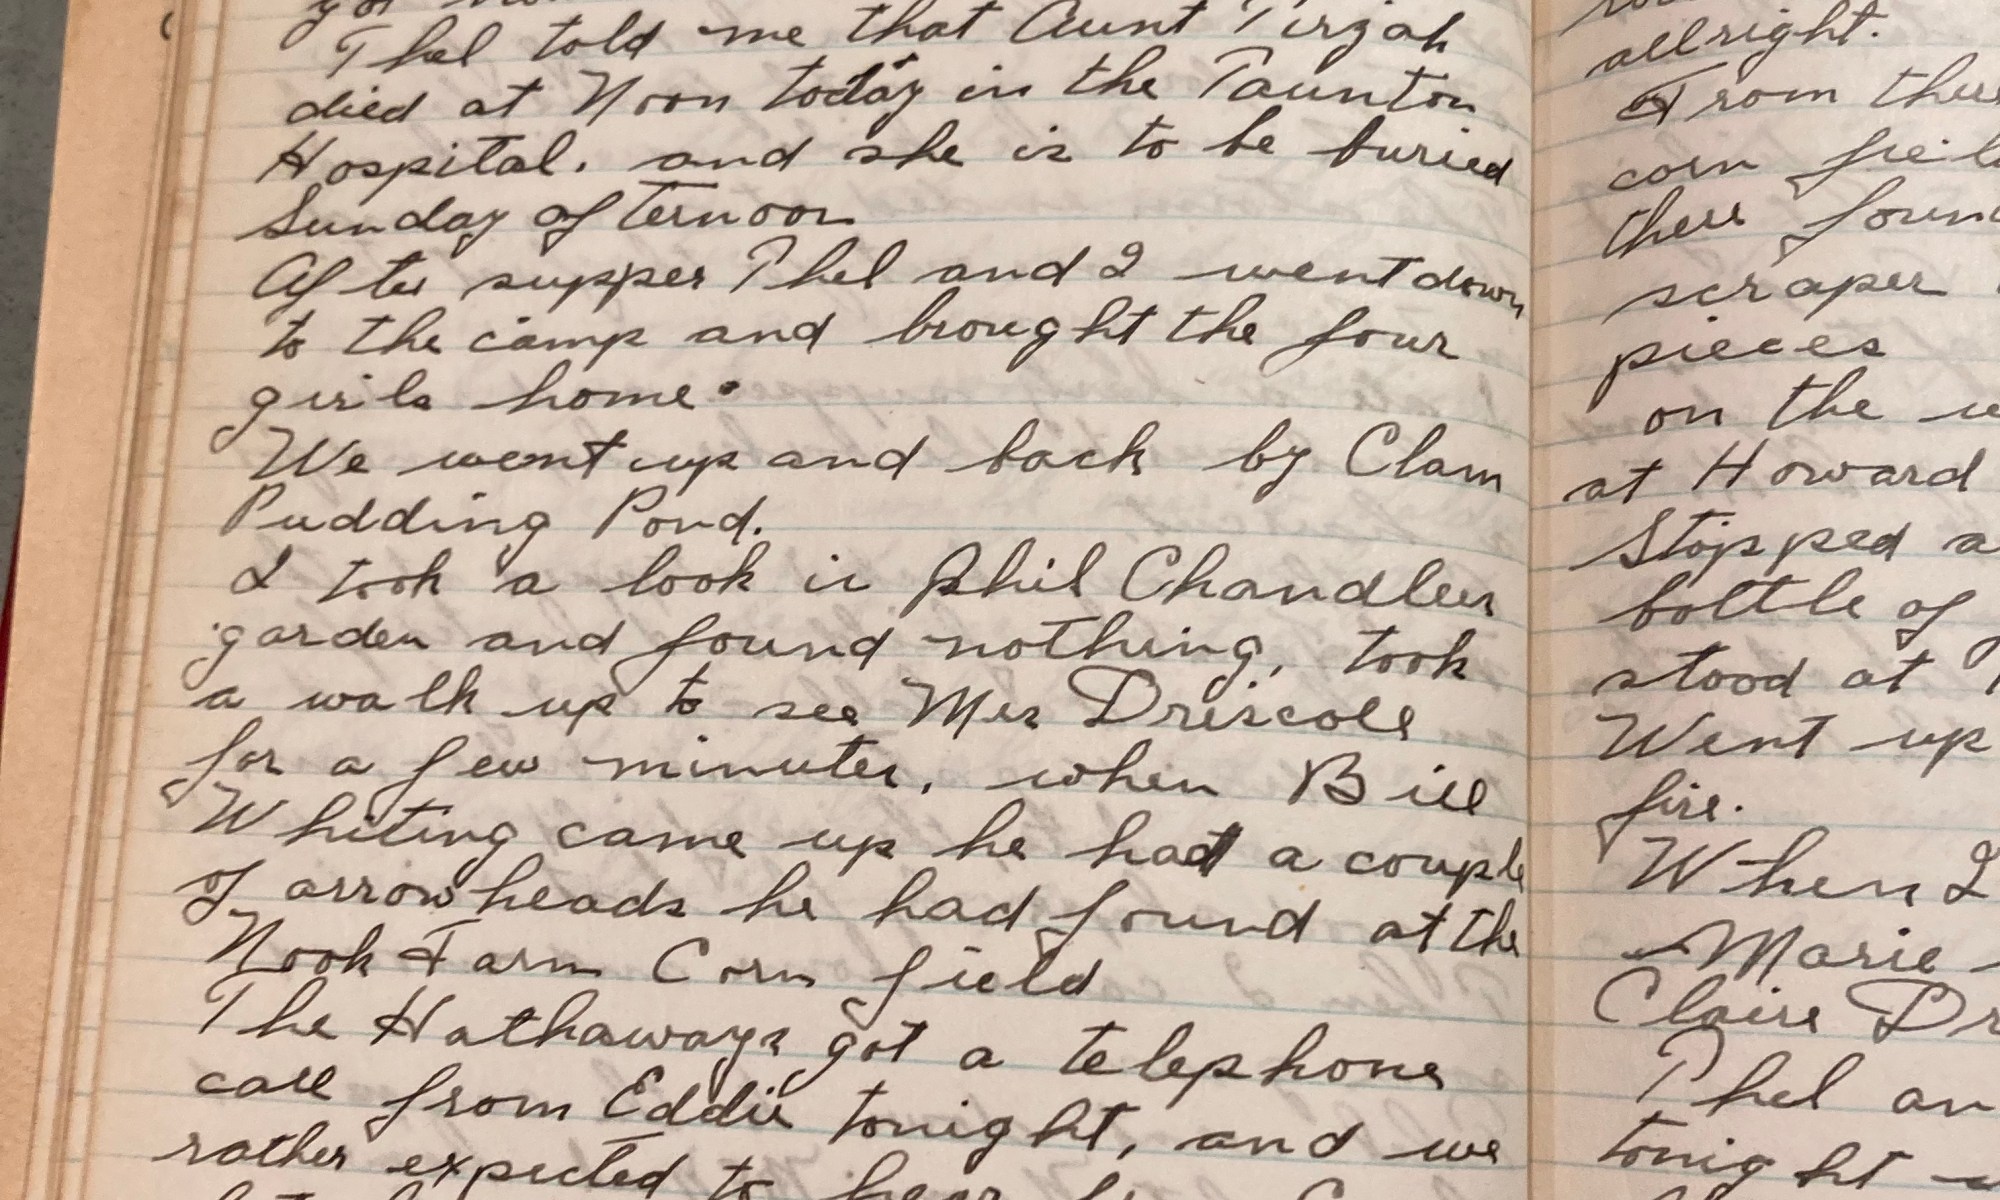 Thel told me that Aunt Tirzah
died at Noon today in the Taunton
Hospital. and she is to be buried
Sunday afternoon
After supper Thel and I went down
to the camp and brought the four
girls home.
We went up and back by Clam
Pudding Pond.
I took a look in Phil Chandlers
garden and found nothing, took
a walk up to see Mrs Driscoll
for a few minutes, when Bill
Whiting came up he had a couple
of arrowheads he had found at the
Nook Farm Corn field
The Hathaways got a telephone
call from Eddie tonight, and we
rather expected to hear
allright.
From
corn
there
scraper
pieces
on the
at Howard
Stopped
bottle of
stood at
Went up
fire.
When I
Marie
Claire
Thel
tonight